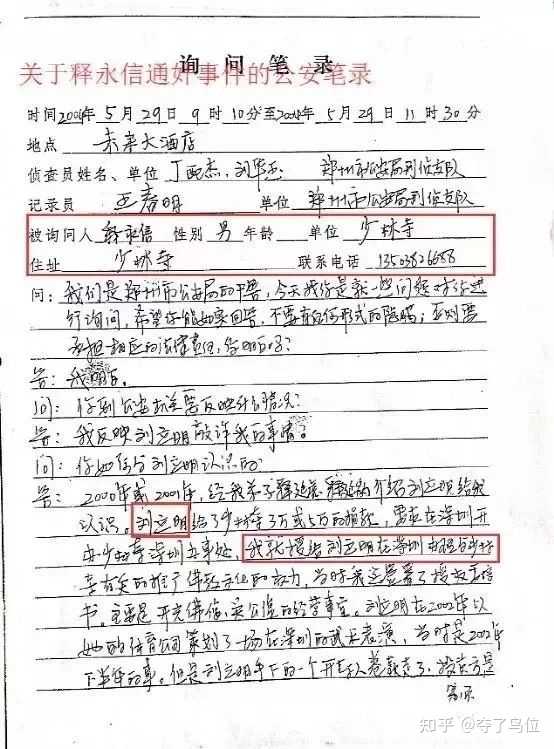 询问笔录
关于释永信通奸事件的公安笔录
时间2004年5月29日9时10分至2004年5月29日11时30分
地点 未来大酒店
侦查员姓名、单位 郑州市公安局刑侦支队
记录员 王春明 单位 郑州市公安局刑侦支队
被询问人 释永信 性别 男 年龄 单位 少林寺
住址 少林寺 联系电话
问:我们是郑州市公安局的干警,今天我们是就一些问题对你进
行询问,希望你能如实回答,不要有任何形式的隐瞒;否则要
承担相应的法律责任,你明白吗?
答:我明白。
问:你到公安机关要反映什么情况?
答:我反映刘立明敲诈我的事情。
问:你如何与刘立明认识的
答:2000年或2001年,经我弟子介绍刘立明给我
认识。刘立明给了少林寺3万或5万的捐款,要求在深圳开
办少林寺深圳办事处,我就授给刘立明在深圳办理与少林
寺有关的推广佛教文化的权力,当时我还签署了授权委托
书。主要是开光佛像、的经营事宜。刘立明在2002年以
她的体育公司策划了一场在深圳的武术表演,当时是2002年
下半年的事。但是刘立明手下的一个开车人卷款走了,投资方是
知乎 @夺了鸟位